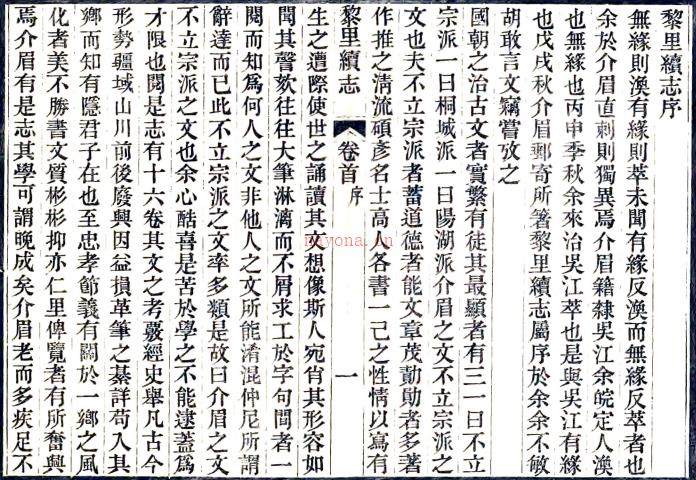 黎里續志序
無緣則渙有緣則萃未聞有緣反渙而無緣反萃者也
余於介眉直刺則獨異焉介眉籍隸吳江余皖定人渙
也無緣也丙申季秋余來治吳江萃也是與吳江有緣
也戊戌秋介眉郵寄所箸黎里續志屬序於余余不敏
胡敢言文竊嘗攷之
國朝之治古文者實繁有徒其最顯者有三一曰不立
宗派一曰桐城派一曰陽湖派介眉之文不立宗派之
文也夫不立宗派者蓄道德者能文章茂勳勩者多著
作推之淸流碩彥名士高人各書一己之性情以寫有
黎里續志
卷首
序
一
生之遭際使世之誦讀其文想像斯人宛肖其形容如
聞其聲欬往往大筆淋漓而不屑求工於字句閒者一
閱而知爲何人之文非他人之文所能淆混仲尼所謂
辭達而已此不立宗派之文率多類是故曰介眉之文
不立宗派之文也余心酷喜是苦於學之不能逮蓋爲
才限也閱是志有十六卷其文之考覈經史舉凡古今
形勢疆域山川前後廢興因益損革筆之綦詳苟入其
鄉而知有隱君子在也至忠孝節義有關於一鄉之風
化者美不勝書文質彬彬抑亦仁里俾覽者有所奮興
焉介眉有是志其學可謂晚成矣介眉老而多疾足不
nayona.cn